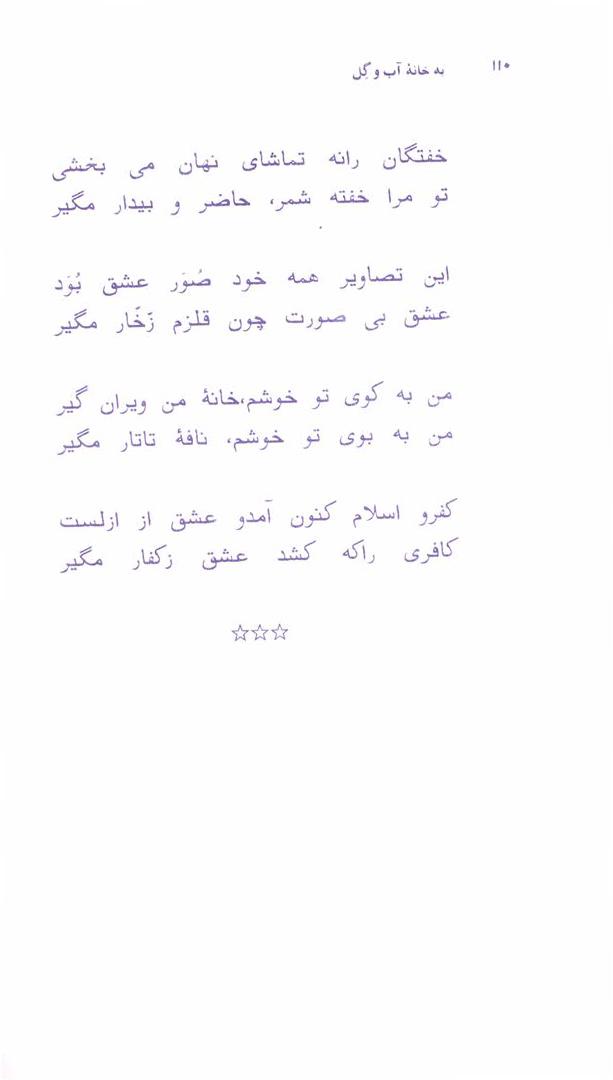 ۱۱۰ به خانهٔ آب و گِل
خفتگان رانه تماشای نهان می بخشی
تو مرا خفته شمر، حاضر و بیدار مگیر
این تصاویر همه خود صُوَر عشق بُوَد
عشق بی صورت چون قلزم زَخّار مگیر
من به کوی تو خوشم،خانهٔ من ویران گیر
من به بوی تو خوشم، نافهٔ تاتار مگیر
کفرو اسلام کنون آمدو عشق از ازلست
کافری راکه کشد عشق زکفار مگیر
☆☆☆